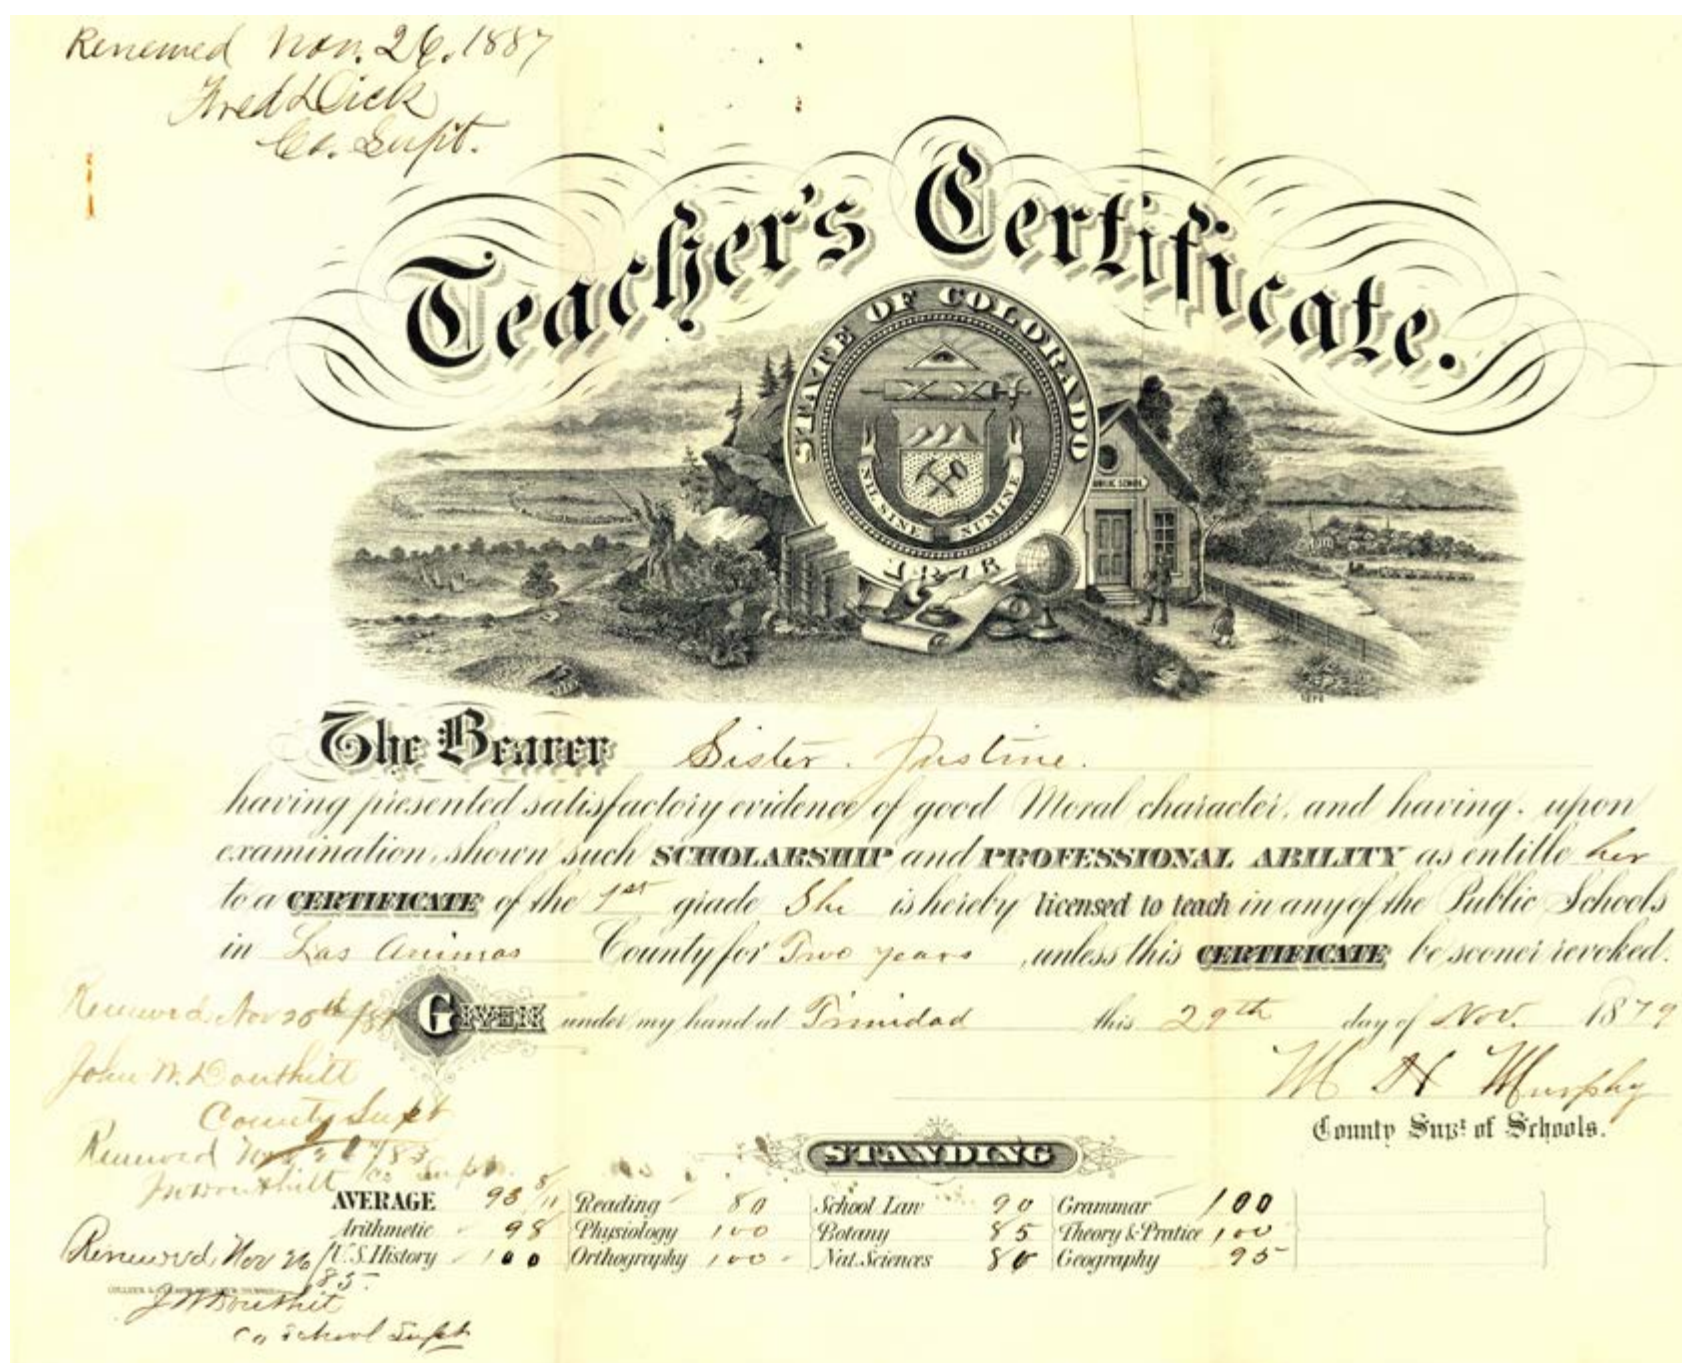 Renewed Nov. 26, 1887
Fred Dick
Co. Supt.
Teacher's Certificate.
STATE OF COLORADO
NIL SINE NUMINE
1876
PUBLIC SCHOOL
The Bearer Sister Justine.
having presented satisfactory evidence of good Moral character, and having, upon
examination, shown such SCHOLARSHIP and PROFESSIONAL ABILITY as entitle her
to a CERTIFICATE of the 1st grade She is hereby licensed to teach in any of the Public Schools
in Las Animas County for Two years, unless this CERTIFICATE be sooner revoked.
GIVEN under my hand at Trinidad this 29th day of Nov. 1879
Renewed Nov
John W. Douthitt
County Supt
M H Murphy
County Supt of Schools.
Renewed
JW Douthitt Co Supt.
STANDING
AVERAGE 93 8/11 Reading 80 School Law 90 Grammar 100
Arithmetic 98 Physiology 100 Botany 85 Theory & Pratice 100
U.S. History 100 Orthography 100 Nat. Sciences Geography 95
Renewed Nov 26/85.
JW Douthit
Co School Supt